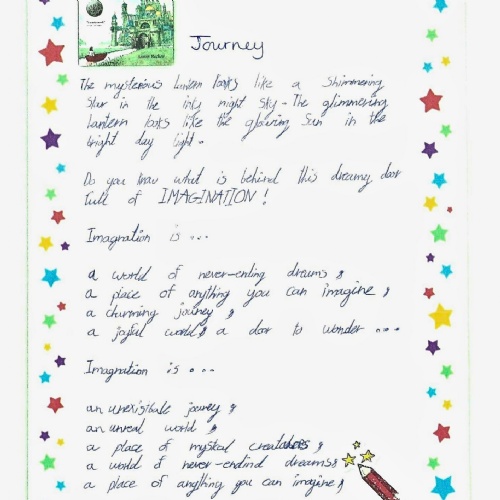 Journey
The mysterious lantern looks like a shimmering
star in the inky night sky. The glimmering
lantern looks like the glowing sun in the
bright day light.
Do you know what is behind this dreamy door
full of IMAGINATION!
Imagination is...
a world of never-ending dreams,
a place of anything you can imagine,
a charming jouney,
a joyful world, a door to wonder...
Imagination is...
an unexisitable journey,
an unreal world,
a place of mystical creatures,
a world of never-endind dreams,
a place of anything you can imagine,